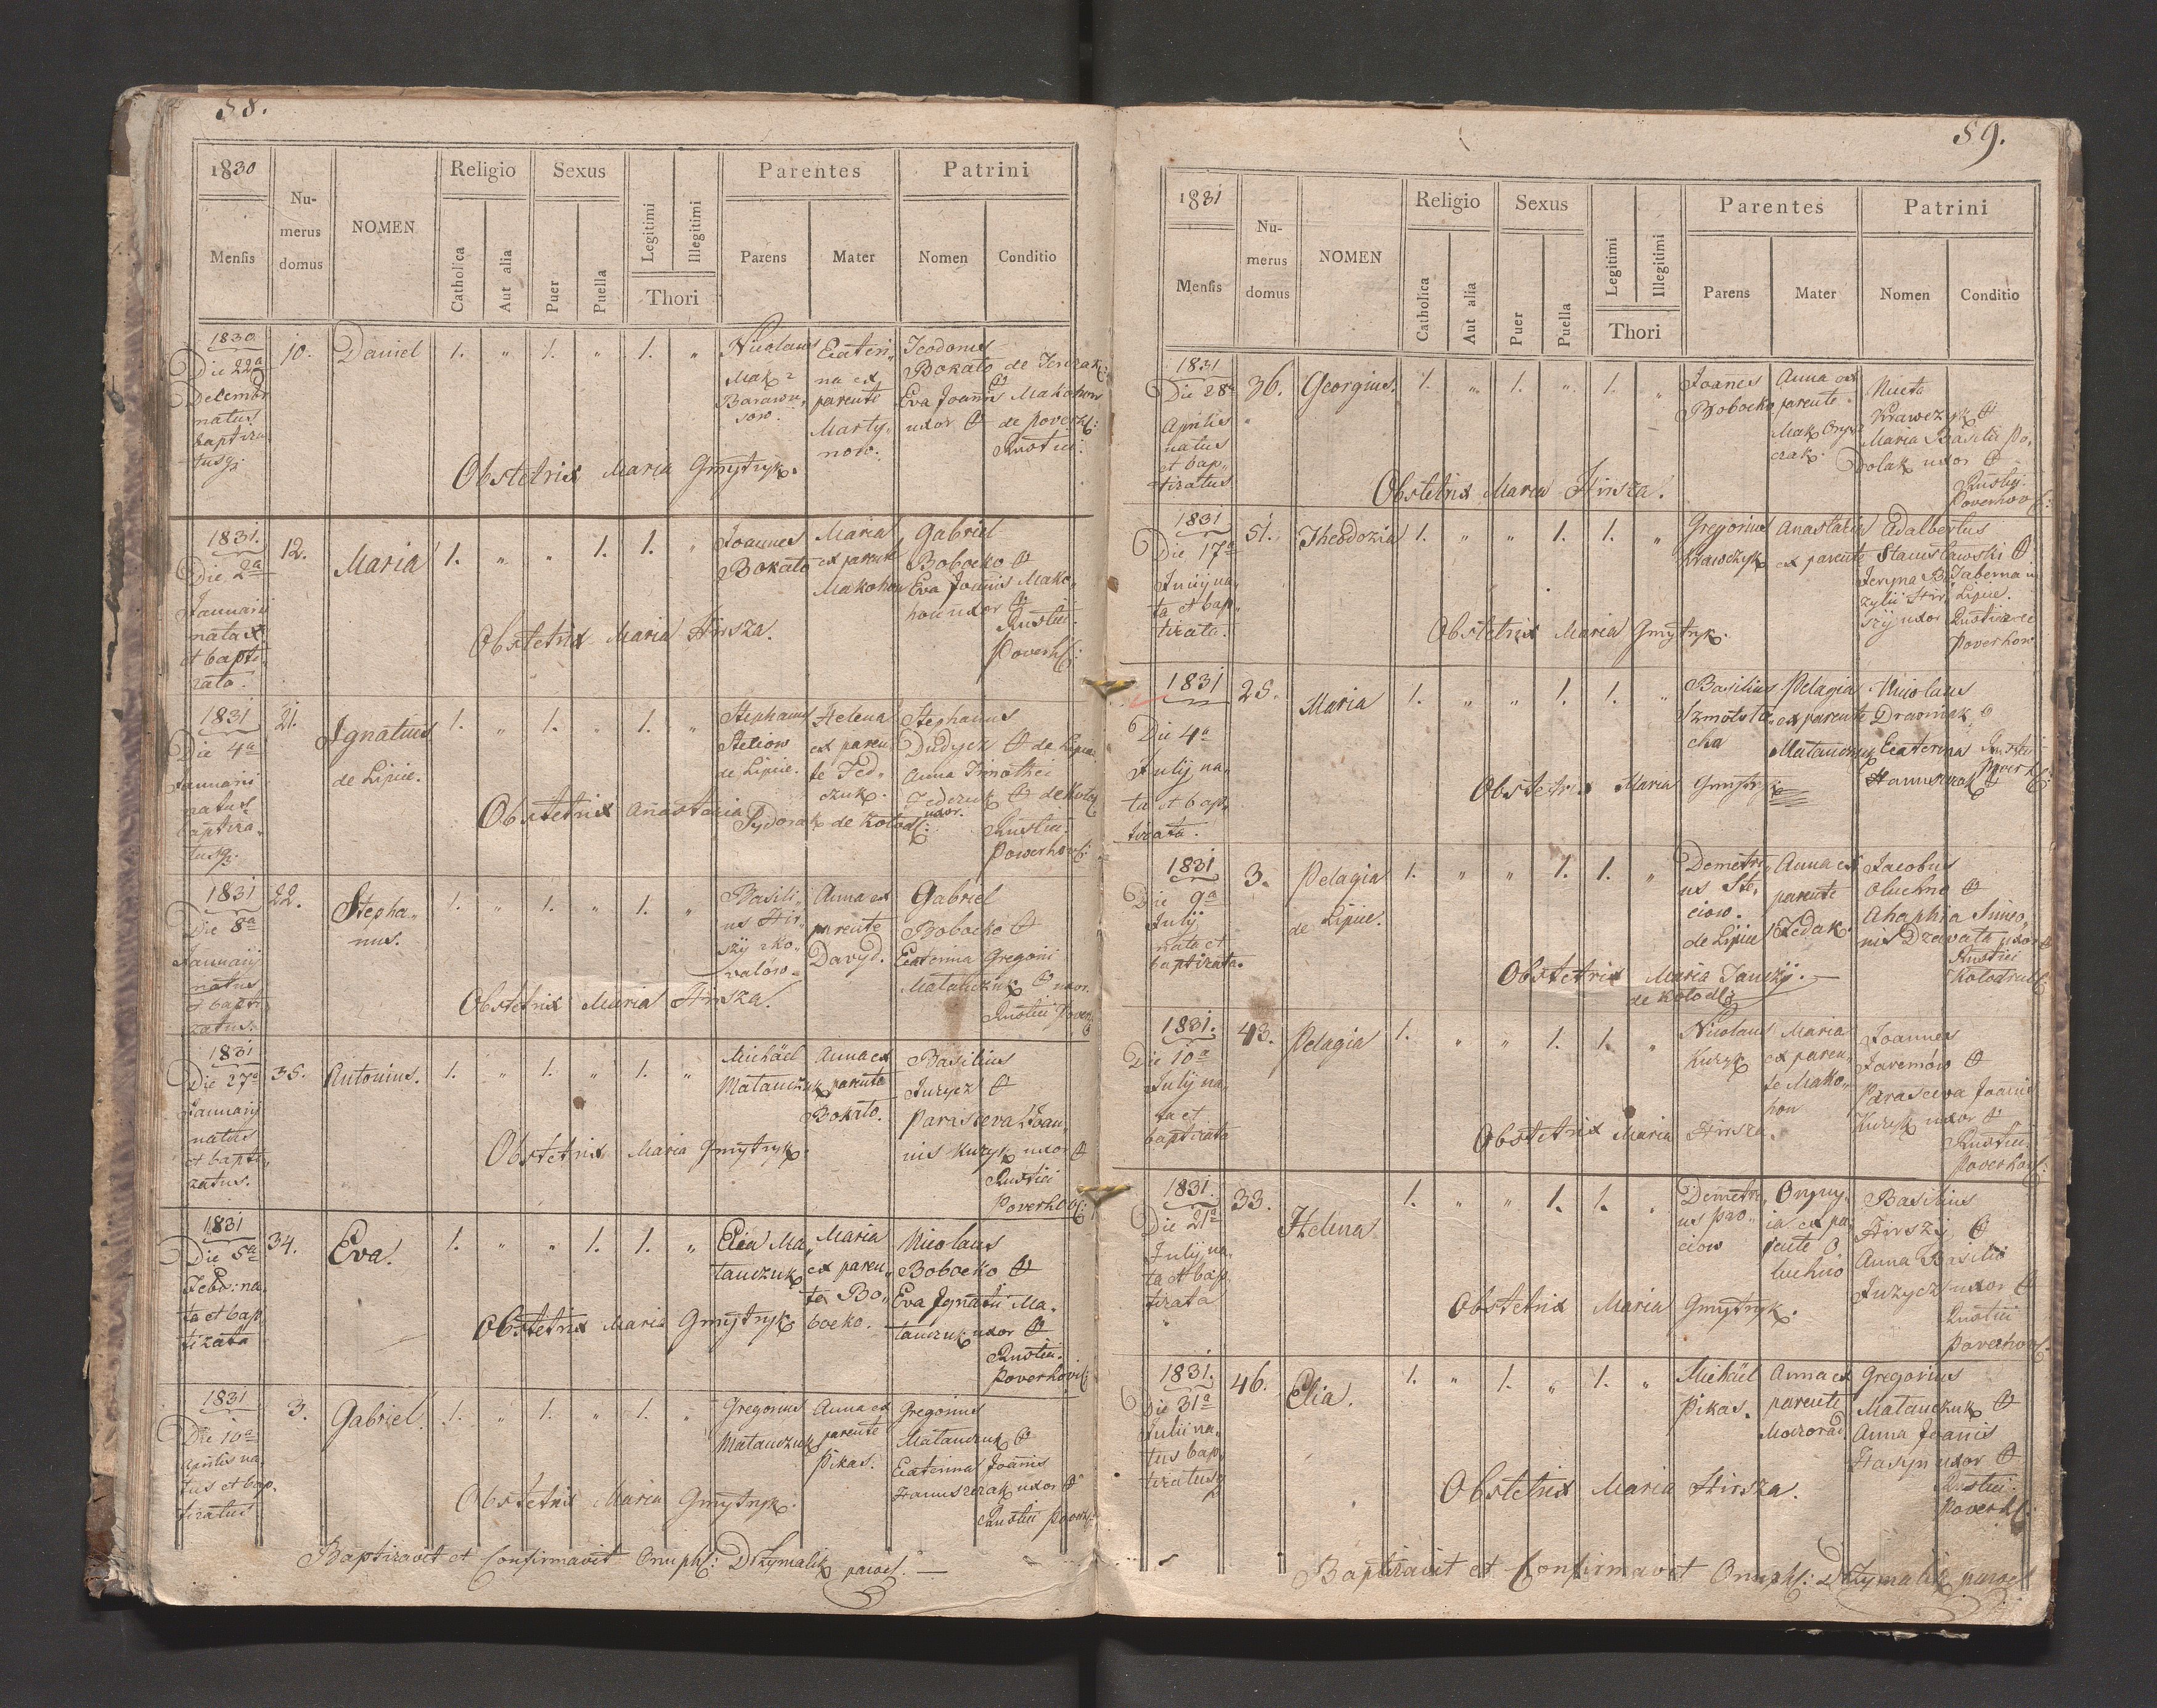 58.
1830
Mensis
Nu-
merus
domus
NOMEN
Religio
Catholica
Aut alia
Sexus
Puer
Puella
Legitimi
Illegitimi
Thori
Parentes
Parens
Mater
Patrini
Nomen
Conditio
1830
Die 22a
Decembr
natus
baptiza
tusq;
10.
Daniel
1. " 1. " 1. "
Nicolaus
Mak
Ecateri
na ex
parente
Marty
now.
Teodorus
Bokato de
Eva Joannis Makohon
uxor de Poverh:
Rustici:
Obstetrix Maria Gmytryk.
1831.
Die 2a
Januarii
nata
et bapti
zata.
12.
Maria
1. " " 1. 1. "
Joannes
Bokato
Maria
ex parente
Makohon
Gabriel
Bobocko
Eva Joannis Mako
hon uxor
Rustici.
Poverh:
Obstetrix Maria Hirsza.
1831
Die 4a
Januarii
natus
baptiza
tusq;
21.
Ignatius
de Lipie.
1. " 1. " 1. "
Stephanus
Steciow
de Lipie.
Helena
ex paren
te Fed
czuk.
Stephanus
Dudycz de Lipie
Anna Timothei
Fedczuk de Kolod:
uxor.
Rustici
Powerhow:
Obstetrix Anastasia
Sydorak de Kolod:
1831
Die 8a
Januarij
natus
et bapti
zatus.
22.
Stepha
nus.
1. " 1. " 1. "
Basili
us Hir
szy zko
valow
Anna ex
parente
Davyd.
Gabriel
Bobocko
Ecaterina Gregorii
Matanczuk uxor.
Rustici Pover:
Obstetrix Maria Hirsza.
1831
Die 27a
Januarij
natus
et bapti
zatus.
35.
Antonius.
1. " 1. " 1. "
Michäel
Matanczuk
Anna ex
parente
Bokato.
Basilius
Juzycz
Parasceva Joan
nis Kuzyk uxor
Rustici
Poverhov:
Obstetrix Maria Gmytryk.
1831
Die 5a
Febr: na
ta et bap
tizata
34.
Eva.
1. " " 1. 1. "
Elia Ma
tanczuk
Maria
ex paren
te Bo
bocko.
Nicolaus
Bobocko
Eva Ignatii Ma
tanczuk uxor
Rustici.
Poverhovi:
Obstetrix Maria Gmytryk
1831
Die 10a
Aprilis na
tus et bap
tizatus
3.
Gabriel.
1. " 1. " 1. "
Gregorius
Matanczuk
Anna ex
parente
Pikas.
Gregorius
Matanczuk
Ecaterina Joannis
Hanuszczak uxor
Rustici Poverh:
Obstetrix Maria Gmytryk.
Baptizavit et Confirmavit Onuph: Drzymalik paroch:
59.
1831
Mensis
Nu-
merus
domus
NOMEN
Religio
Catholica
Aut alia
Sexus
Puer
Puella
Legitimi
Illegitimi
Thori
Parentes
Parens
Mater
Patrini
Nomen
Conditio
1831
Die 28a
Aprilis
natus
et bap
tizatus
36.
Georgius.
1. " 1. " 1. "
Joannes
Bobocko
Anna ex
parente
Mak
Niceta
Krawczyk
Maria Basilii Po
dolak uxor
Rustici.
Poverhov:
Obstetrix Maria Hirsza.
1831
Die 17a
Junij na
ta et bap
tizata.
51.
Theodozia
1. " " 1. 1. "
Gregorius
Krawczyk
Anastasia
ex parente
Adalbertus
Stanislawski
Taberna in
Lipie.
uxor Rustici
Poverhow
Obstetrix Maria Gmytryk.
1831
Die 4a
Julij na
ta et bap
tizata.
25.
Maria
1. " " 1. 1. "
Basilius
Szmotolo
cha
Pelagia
ex parente
Matanczuk
Nicolaus
Drapniak
Ecaterina
Hanuszczak
Rustici
Poverh:
Obstetrix Maria Gmytryk
1831
Die 9a
Julij
nata et
baptizata.
3.
Pelagia
de Lipie.
1. " " 1. 1. "
Demetri
us Ste
ciow.
de Lipie
Anna ex
parente
Fedak.
Jacobus
Oluchno
Ahaphia Simeo
nis Dzavata uxor
Rustici
Kolodrub:
Obstetrix Maria Janczij.
de Kolod:
1831.
Die 10a
Julij na
ta et
baptizata
43.
Pelagia
1. " " 1. 1. "
Nicolaus
Kuzyk
Maria
ex paren
te Mako
hon
Joannes
Jaremow
Parasceva Joannis
Kuzyk uxor
Rustici
Poverhov:
Obstetrix Maria Hirsza.
1831.
Die 21a
Julij na
ta et bap
tizata
33.
Helena
1. " " 1. 1. "
Demetri
us Pro
ciow
ia ex pa
rente O
luchno
Basilius
Hirszij
Anna Basilii
Juzycz uxor
Rustici
Poverhov:
Obstetrix Maria Gmytryk.
1831.
Die 31a
Julii na
tus bap
tizatusq
46.
Elia.
1. " 1. " 1. "
Michäel
Pikas.
Anna ex
parente
Mozorad.
Gregorius
Matanczuk
Anna Joannis
Hasyn uxor
Rustici.
Poverh:
Obstetrix Maria Hirsza.
Baptizavit et Confirmavit Onuph: Drzymalik paroch